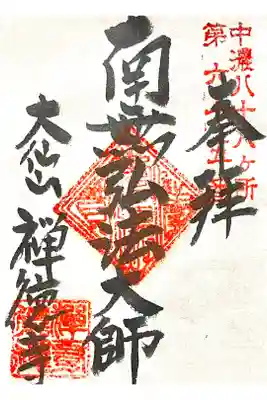 中濃八十八ヶ所
奉拝
南無弘法大師
大仙山 禅徳寺